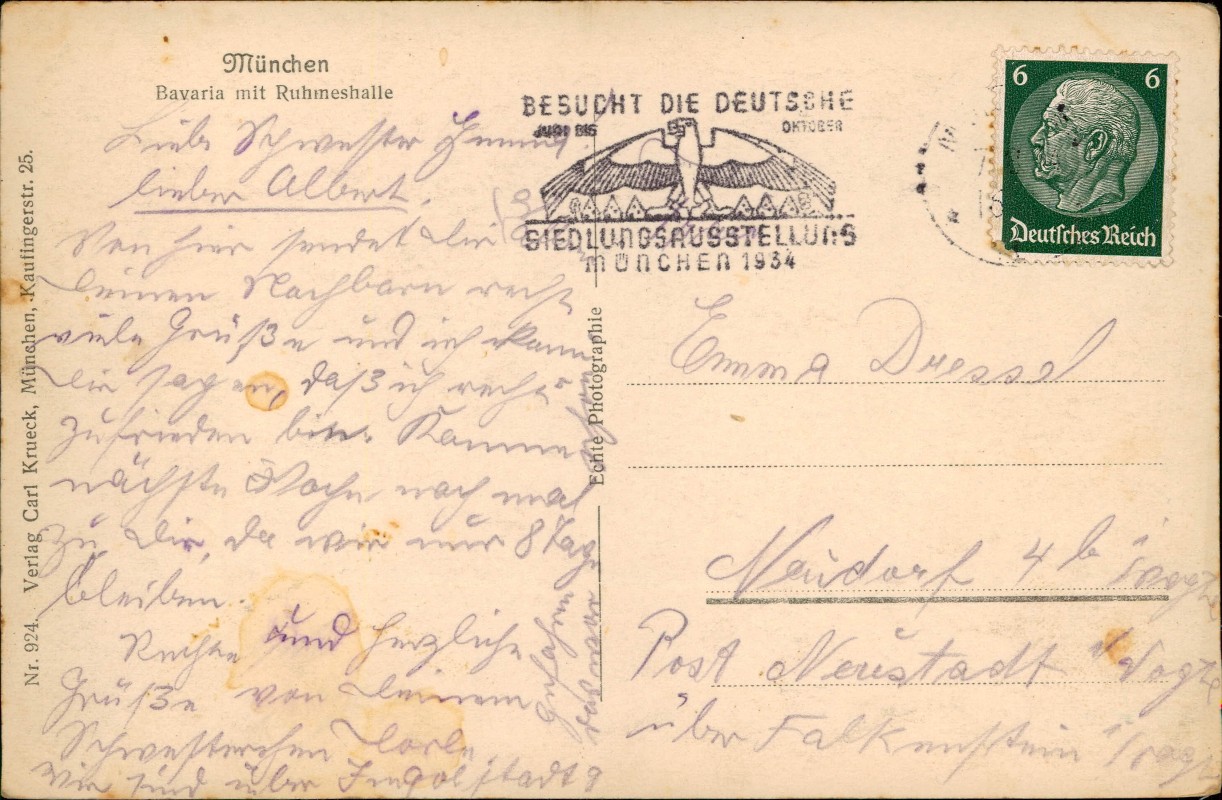 München
Bavaria mit Ruhmeshalle
Liebe Schwester Emma!
lieber Albert.
Von hier sendet Dir
Deinen Nachbarn recht
viele Grüße und ich kann
Dir sagen, daß ich recht
zufrieden bin. Komme
nächste Woche noch mal
zu Dir, da wir nur 8 Tage
bleiben.
Rechte und herzliche
Grüße von Deinem
Schwesterchen Dorle
Wir sind über Ingolstadt
gefahren
Nr. 924. Verlag Carl Krueck, München, Kaufingerstr. 25.
Echte Photographie
BESUCHT DIE DEUTSCHE
JUNI BIS OKTOBER
SIEDLUNGSAUSSTELLUNG
MÜNCHEN 1934
6 6
Deutsches Reich
Emma Dressel
Neudorf 4b i/Vogtl
Post Neustadt i/Vogtl
über Falkenstein i/Vogtl